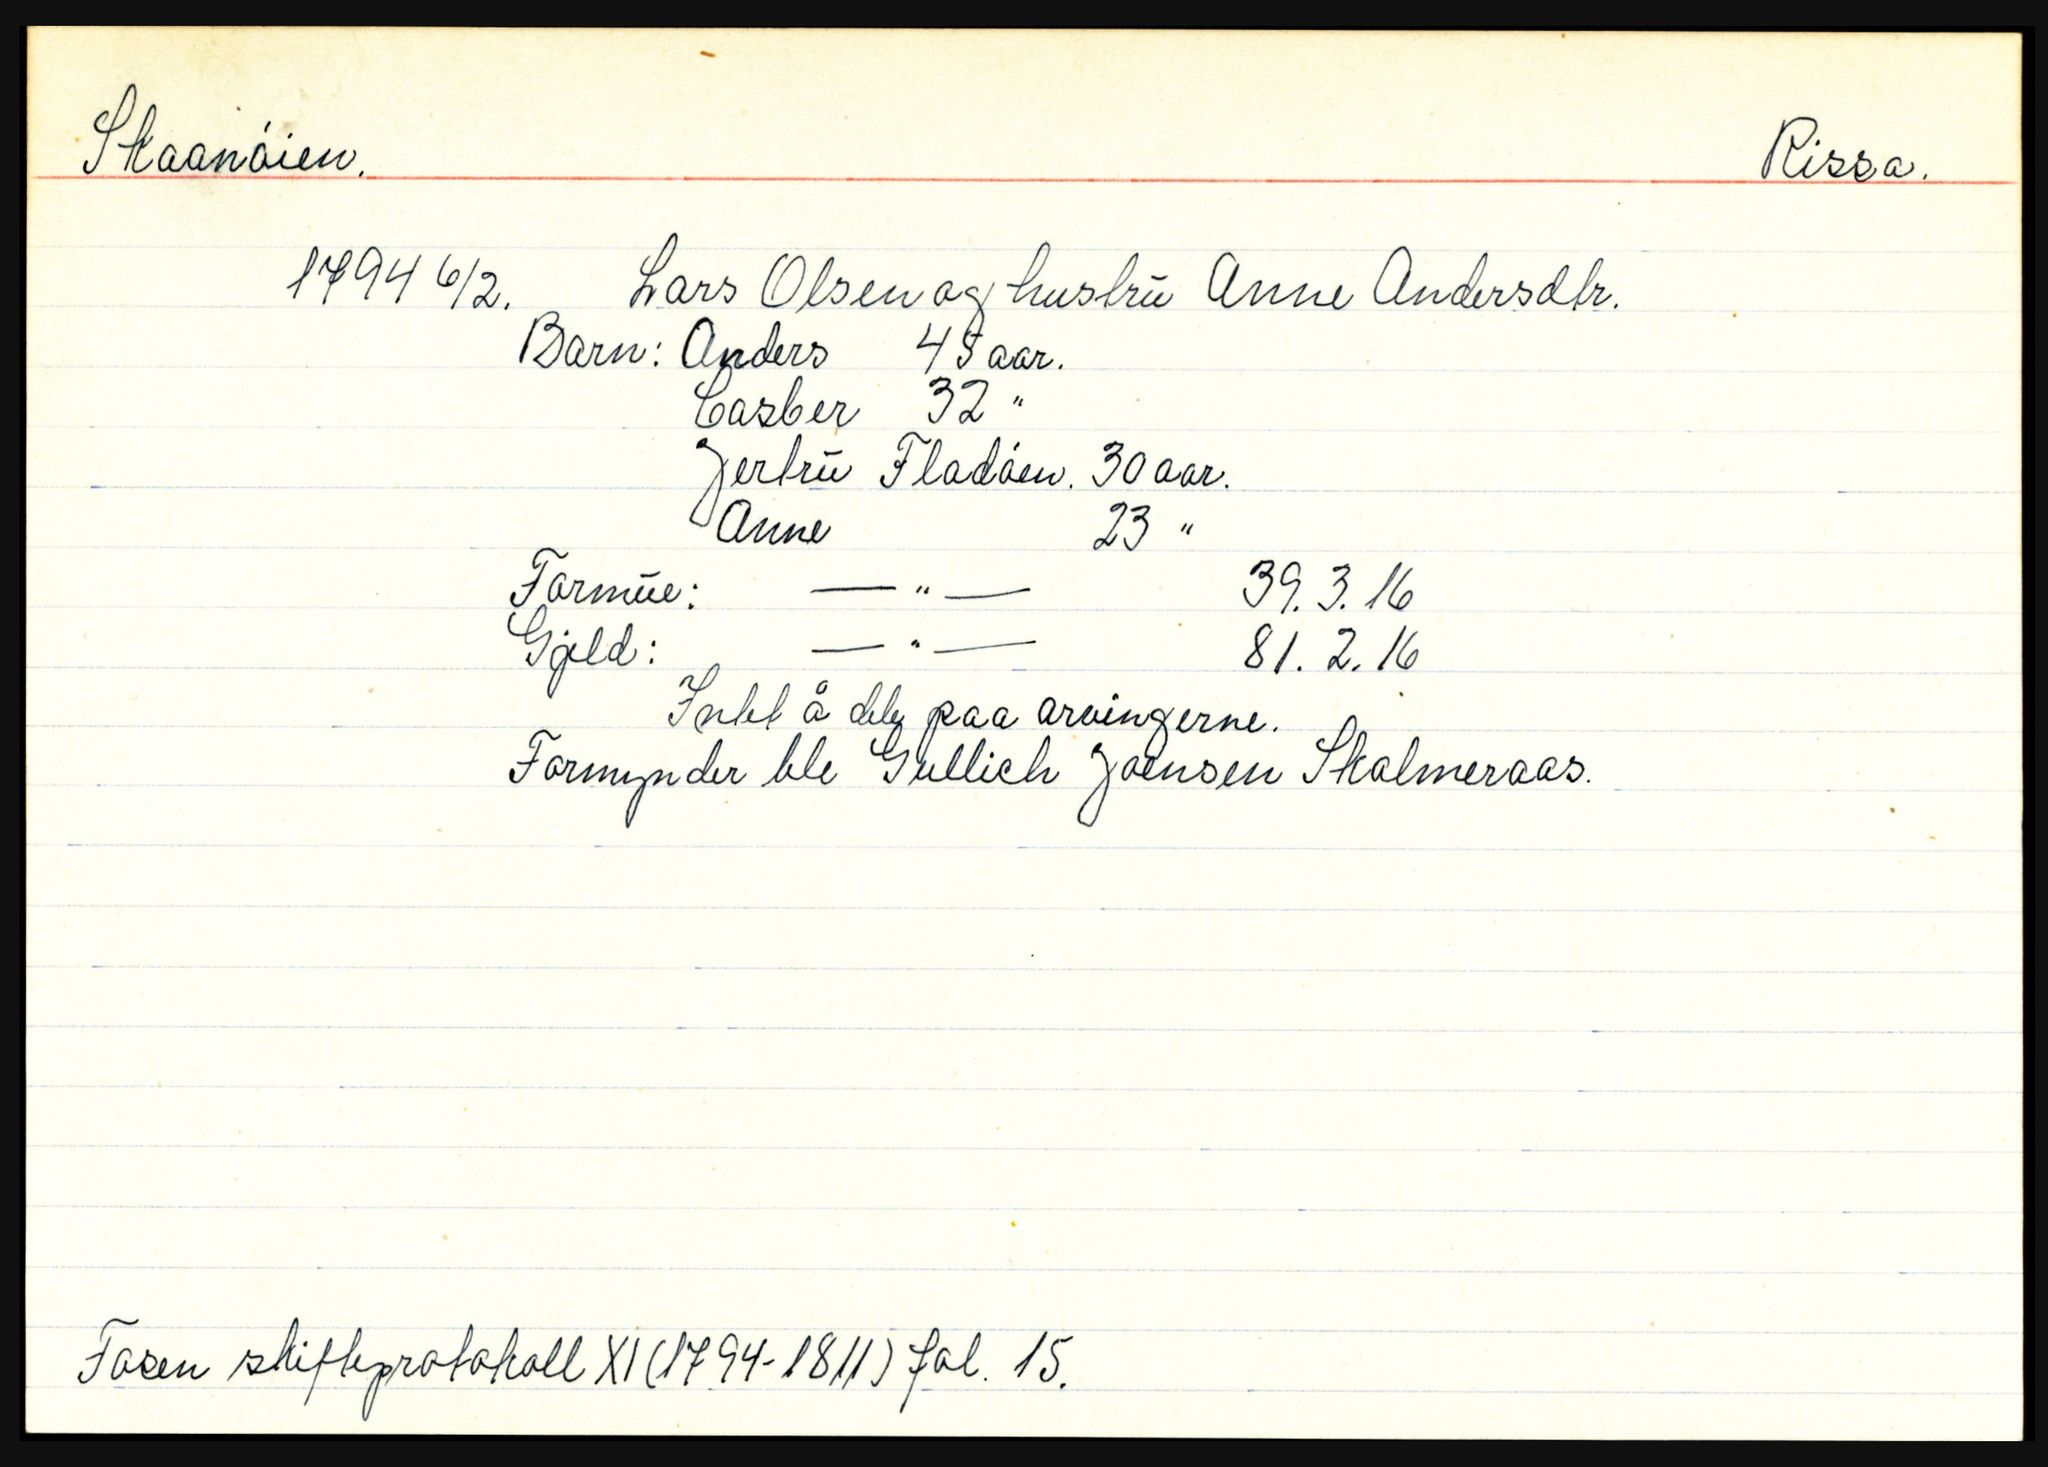 Skaanöien. Rissa.
1794 6/2. Lars Olsen og hustru Anne Andersdtr.
Barn: Anders 45 aar.
Casber 32 "
Jertru Fladöen. 30 aar.
Anne 23 "
Formue: — " — 39. 3. 16
Gjeld: — " — 81. 2. 16
Intet å dele paa arvingerne.
Formynder ble Gullich Joensen Skalmeraas.
Fosen skifteprotokoll XI (1794-1811) fol. 15.